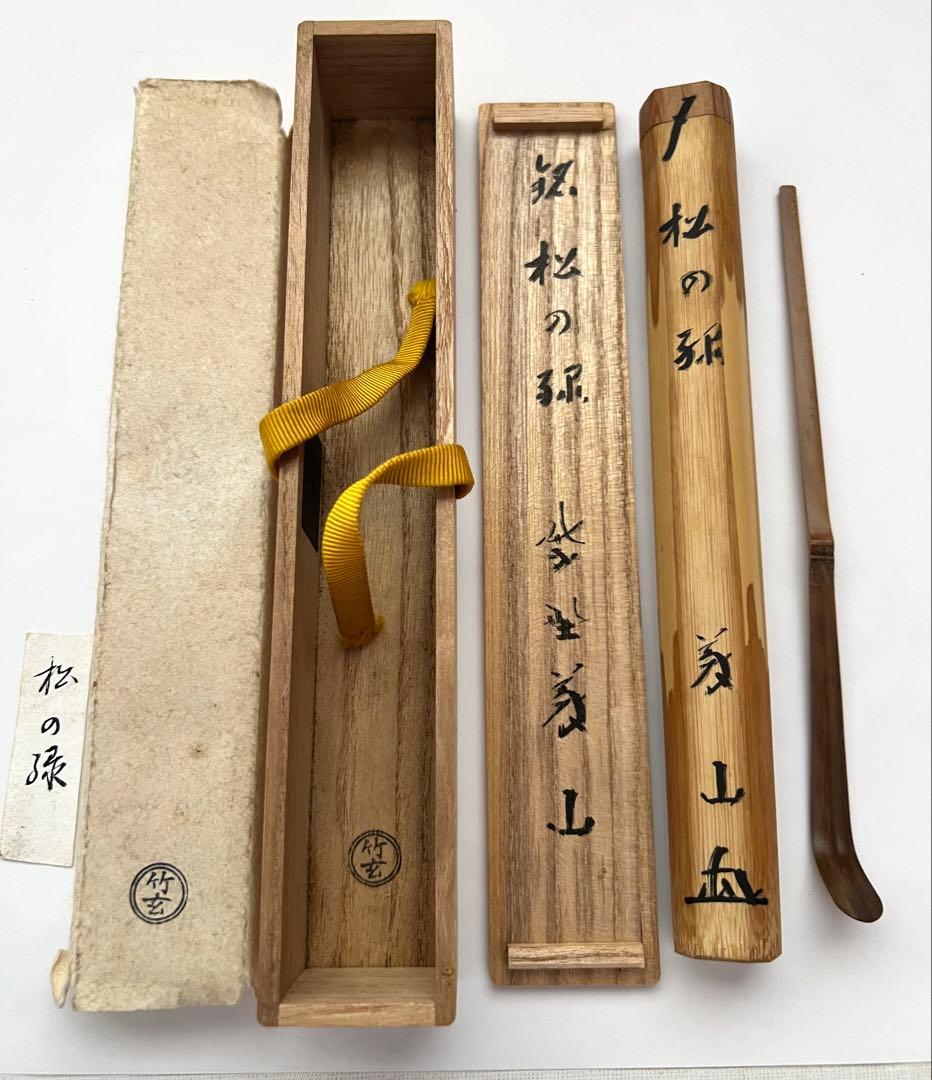 松の緑
竹玄
竹玄
銘 松の緑 紫野 義山
松の緑 義山